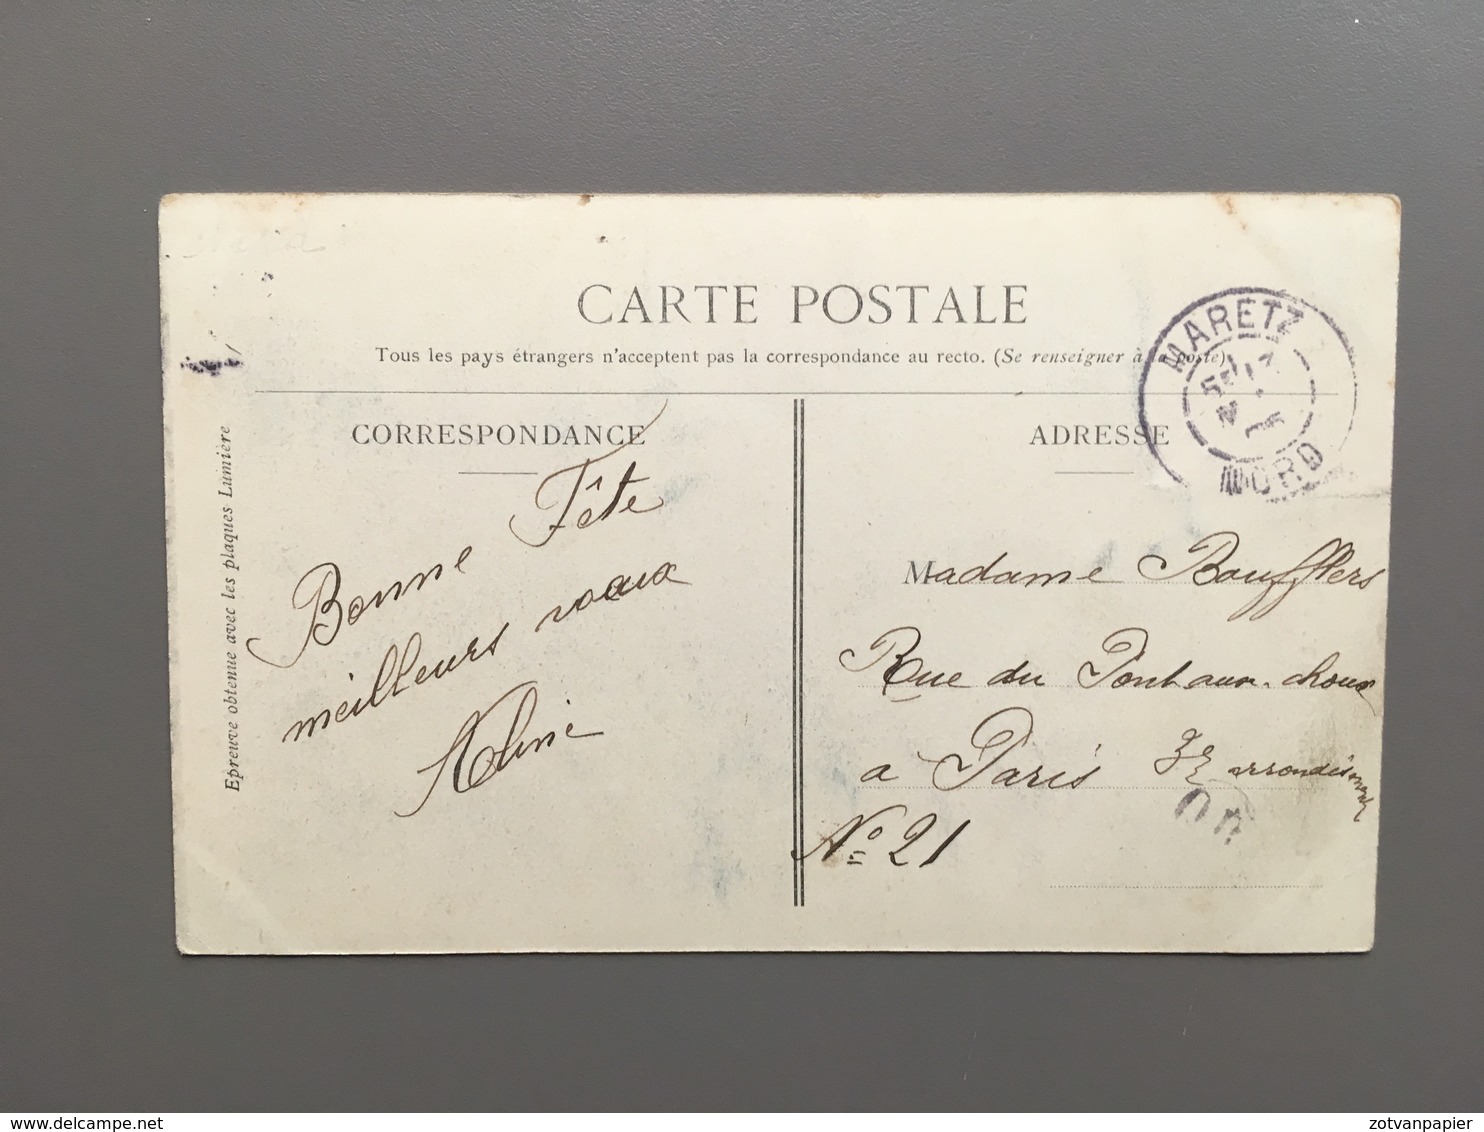 CARTE POSTALE
Tous les pays étrangers n'acceptent pas la correspondance au recto. (Se renseigner à la poste)
MARETZ
NORD
CORRESPONDANCE
ADRESSE
Epreuve obtenue avec les plaques Lumière
Bonne Fête
meilleurs vœux
Aline
Madame Boufflers
Rue du Pont aux choux
a Paris 3e arrondissement
No 21
delcampe.net
zotvanpapier